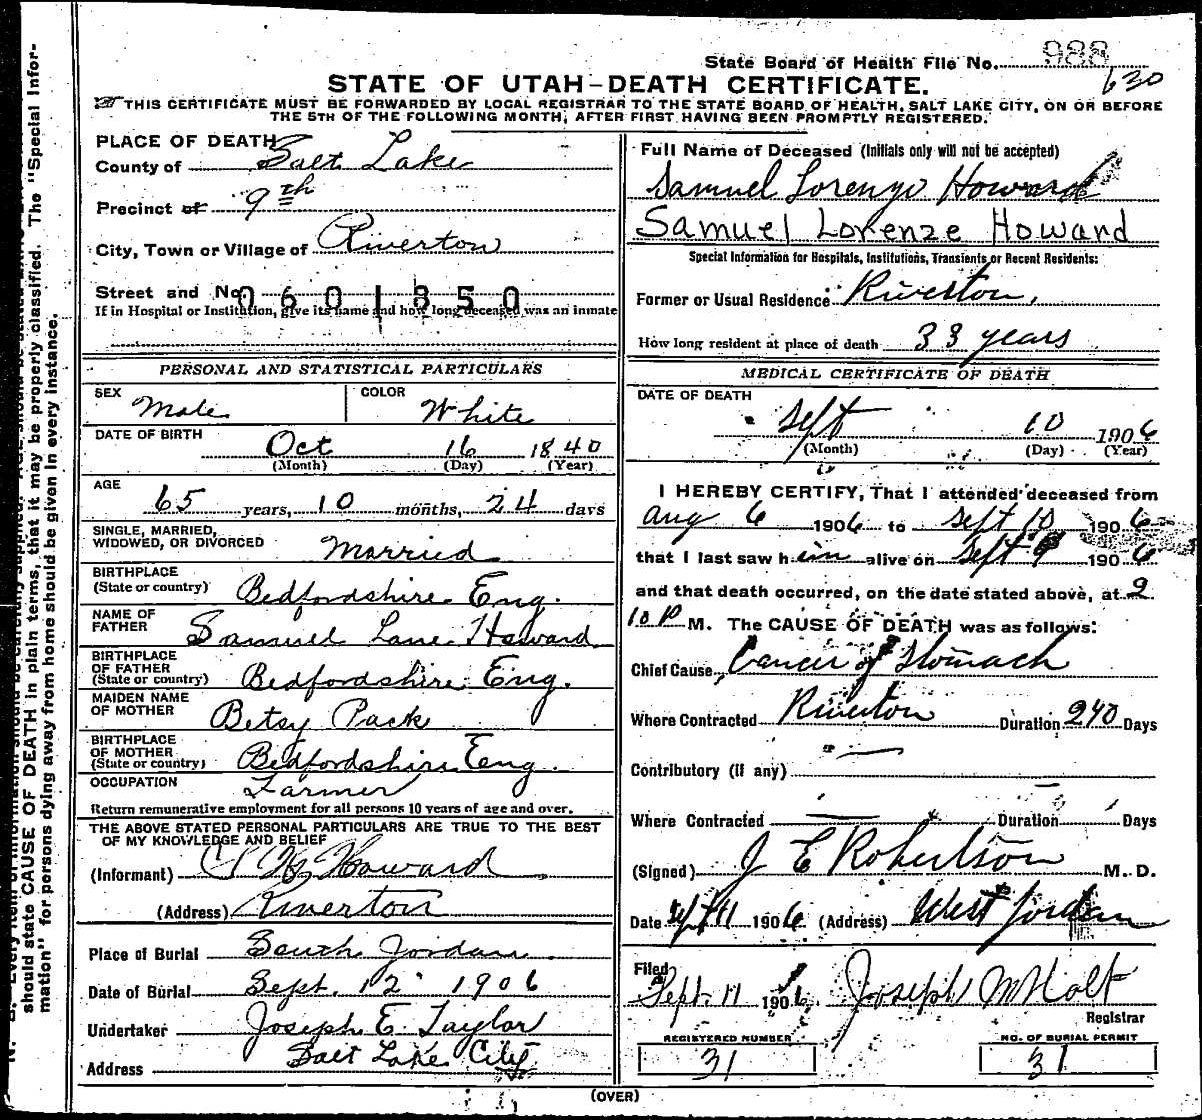 State Board of Health File No. 988
630
STATE OF UTAH-DEATH CERTIFICATE.
THIS CERTIFICATE MUST BE FORWARDED BY LOCAL REGISTRAR TO THE STATE BOARD OF HEALTH, SALT LAKE CITY, ON OR BEFORE
THE 5TH OF THE FOLLOWING MONTH, AFTER FIRST HAVING BEEN PROMPTLY REGISTERED.
PLACE OF DEATH
County of Salt Lake
Precinct of 9th
City, Town or Village of Riverton
Street and No.
0601850
If in Hospital or Institution, give its name and how long deceased was an inmate
PERSONAL AND STATISTICAL PARTICULARS
SEX Male COLOR White
DATE OF BIRTH Oct 16 1840
(Month) (Day) (Year)
AGE
65 years, 10 months, 24 days
SINGLE, MARRIED,
WIDOWED, OR DIVORCED Married
BIRTHPLACE
(State or country) Bedfordshire Eng.
NAME OF
FATHER Samuel Lane Howard
BIRTHPLACE
OF FATHER
(State or country) Bedfordshire Eng.
MAIDEN NAME
OF MOTHER Betsy Pack
BIRTHPLACE
OF MOTHER
(State or country) Bedfordshire Eng.
OCCUPATION Farmer
Return remunerative employment for all persons 10 years of age and over.
THE ABOVE STATED PERSONAL PARTICULARS ARE TRUE TO THE BEST
OF MY KNOWLEDGE AND BELIEF
(Informant) Howard
(Address) Riverton
Place of Burial South Jordan
Date of Burial Sept. 12 1906
Undertaker Joseph E. Taylor
Address Salt Lake City
Full Name of Deceased (Initials only will not be accepted)
Samuel Lorenzo Howard
Samuel Lorenze Howard
Special Information for Hospitals, Institutions, Transients or Recent Residents:
Former or Usual Residence Riverton,
How long resident at place of death 33 years
MEDICAL CERTIFICATE OF DEATH
DATE OF DEATH
Sept 10 1906
(Month) (Day) (Year)
I HEREBY CERTIFY, That I attended deceased from
Aug 6 1906 to Sept 10 1906
that I last saw him alive on Sept 9 1906
and that death occurred, on the date stated above, at 2
10 P M. The CAUSE OF DEATH was as follows:
Chief Cause, Cancer of Stomach
Where Contracted Riverton Duration 240 Days
Contributory (if any)
Where Contracted Duration Days
(Signed) J E Robertson M. D.
Date Sept 11 1906 (Address) West Jordan
Filed
Sept. 11 1906 Joseph M Holt
Registrar
REGISTERED NUMBER
31
NO. OF BURIAL PERMIT
31
(OVER)
should state CAUSE OF DEATH in plain terms, that it may be properly classified. The "Special Infor-
mation" for persons dying away from home should be given in every instance.